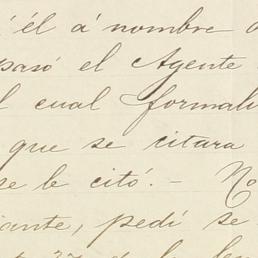 él á nombre
pasó el Agente
l cual formali
que se citara
se le citó. — No
iante, pedí se